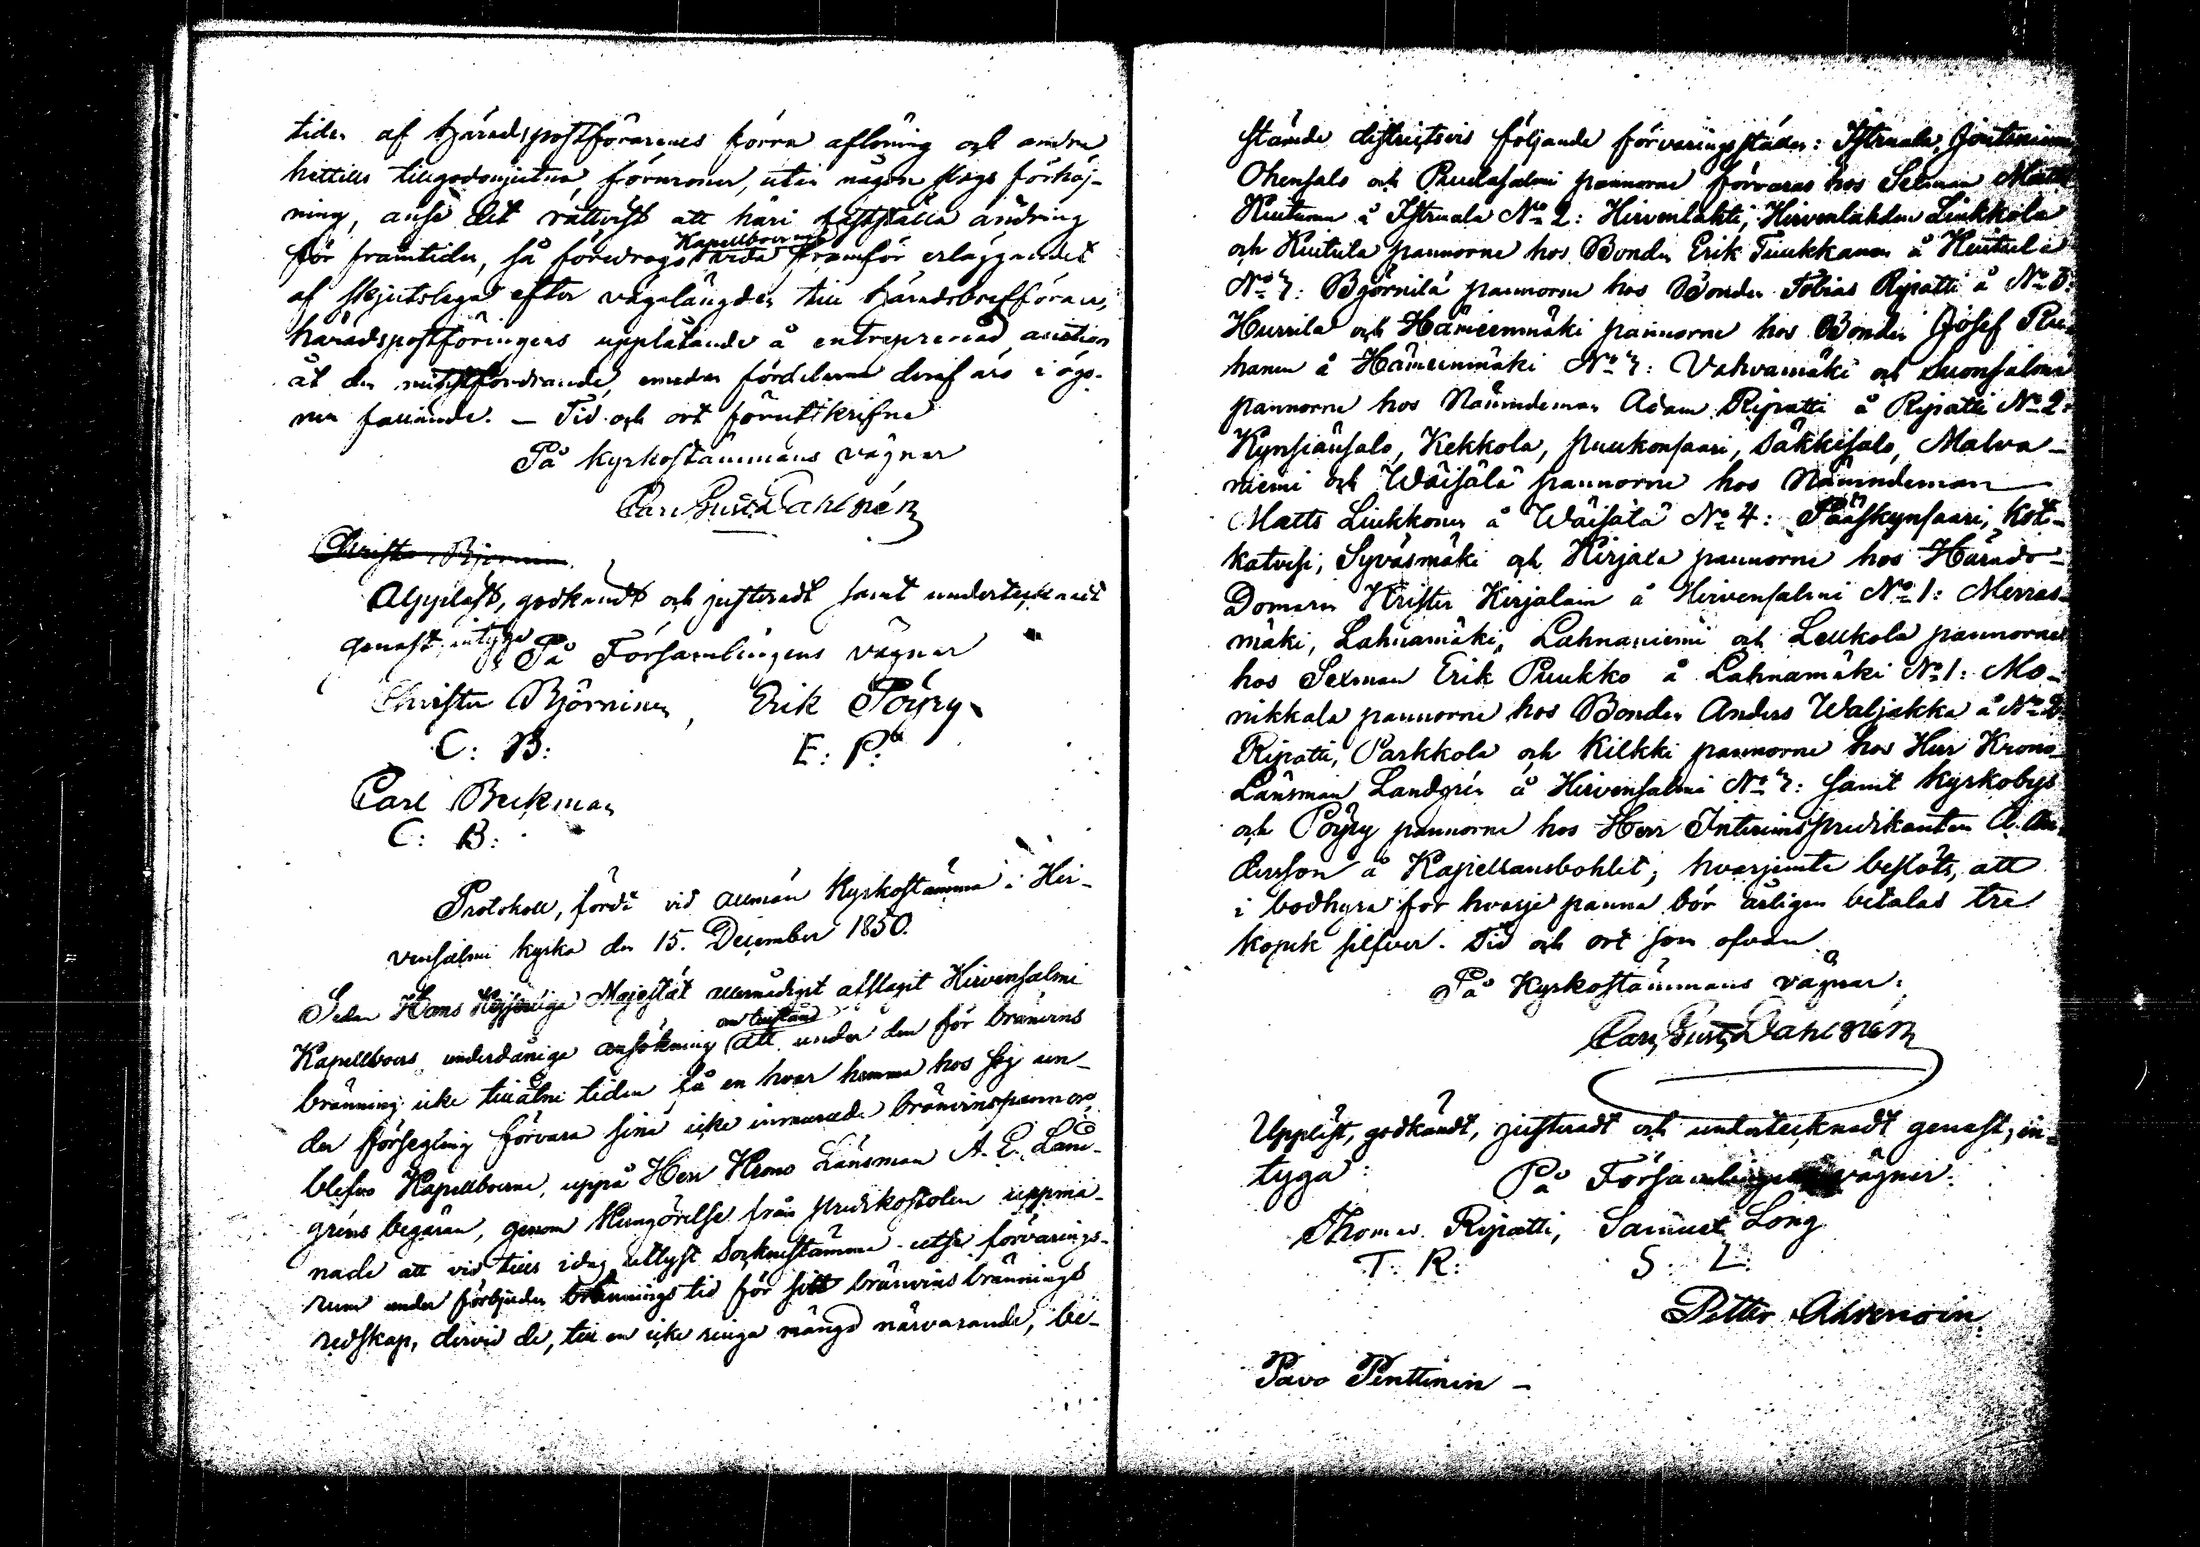 tiden af häradspostförarenes förra aflöning och andra
hittills tillgodonjutna förmoner, utan någon slags förhöj-
ning, anse det rättvist att häri fastställa ändring
för framtiden, så föredrogs Kapellboerne framför erläggandet
af skjutslega efter vägalängden till häradsbrefföraren,
häradspostföringens upplåtande å entreprenad auction
åt den minstfordrande, emedan fördelarna deraf äro i ögo-
nen fallande. – Tid och ort förutskrifne
På kyrkostämmans vägnar
Carl Gust. Dahlnén
Christer Björninen
Uppläst, godkändt och justeradt samt undertecknadt
genast, intyga
På Församlingens vägnar
Christer Björninen, Erik Pöyry
C: B: E: P:
Carl Beckman
C: B:
Protokoll, fördt vid allmän Kyrkostämma i Hir-
vensalmi kyrka den 15. December 1850.
Sedan Hans Kejserliga Majestät allernådigst afslagit Hirvensalmi
Kapellboers underdåniga ansökning om tillstånd att under den för brännvins
bränning icke tillåtne tiden få en hvar hemma hos sig un-
der försegling förvara sina icke inmurade brännvinspannor,
blefvo Kapellboerne, uppå Herr Krono Länsman A. E. Land-
gréns begäran, genom Kungörelse från predikostolen uppma-
nade att vid till idag utlyst Sockenstämma utse förvarings-
rum under förbjuden bränningstid för sitt brännvins brännings
redskap, dervid de, till en icke ringa mängd närvarande, be-
stämde districtsvis följande förvaringsställen: Istruala, Joutsniemi
Ohensalo och Puulasalmi pannorne förvaras hos Sexman Matts
Kiutuma å Istruala No 2: Hirvenlahti, Hirvenlahden Liukkola
och Kuitula pannorne hos Bonden Erik Tiukkanen å Kuitula
No 7: Björnilä pannorne hos Bonden Tobias Ripatti å No 3:
Hurrila och Hämeenmäki pannorne hos Bonden Josef Pur-
hanen å Hämeenmäki No 7: Vahvamäki och Suonsalmi
pannorne hos Nämndeman Adam Ripatti å Ripatti No 2:
Kynsiänsalo, Kekkola, Puukonsaari, Säkkisalo, Malva-
niemi och Wäisälä pannorne hos Nämndeman
Matts Liukkonen å Wäisälä No 4: Pääskynsaari, Kot-
katvesi, Syväsmäki och Kirjala pannorne hos Härads-
Domaren Krister Kirjalain å Hirvensalmi No 1: Merras-
mäki, Lahnamäki, Lahnaniemi och Leukola pannorne
hos Sexman Erik Puukko å Lahnamäki No 1: Mo-
nikkala pannorne hos Bonden Anders Waljakka å No 2:
Ripatti, Parkkola och Kilkki pannorne hos Herr Krono
Länsman Landgrén å Hirvensalmi No 7: samt Kyrkobys
och Pöyry pannorne hos Herr Interimspredikanten A. An-
dersson å Kapellansbohlet; hvarjemte beslöts, att
i bodhyra för hvarje panna bör årligen betalas tre
kopek silfver. Tid och ort som ofvan
På Kyrkostämmans vägnar:
Carl Gust. Dahlnén
Uppläst, godkändt, justeradt och undertecknadt genast, in-
tyga:
På Församlingens vägnar:
Thomas Ripatti, Samuel Long
T: R: S: L:
Petter Ahvenain
Pavo Penttinin –